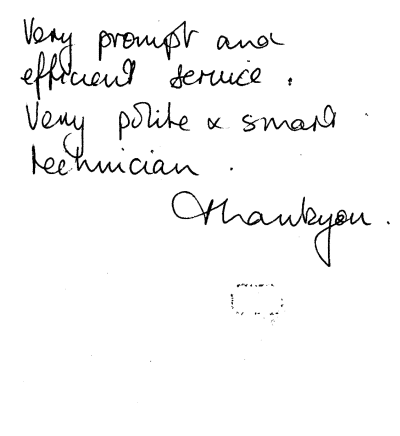 Very prompt and
efficient service.
Very polite & smart
technician.
Thankyou.